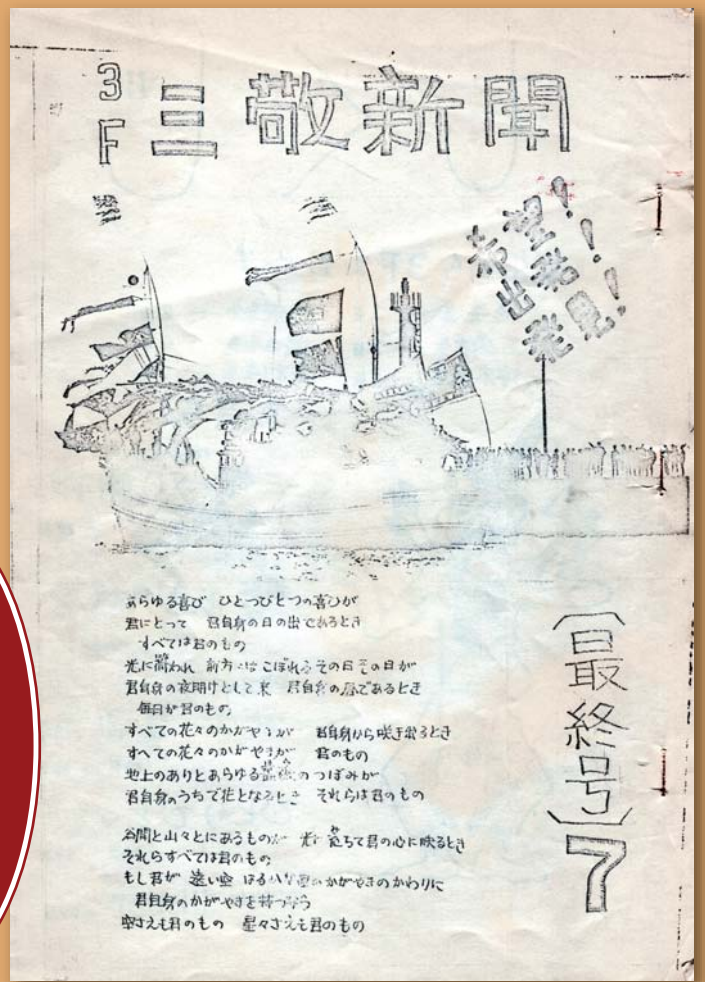 3F 三敬新聞
希望!
新発見!
出発!
あらゆる喜び ひとつびとつの喜びが
君にとって 君自身の日の出であるとき
すべては君のもの
光に 前方に こぼれるその日その日が
君自身の夜明けとして 君自身の昼であるとき
毎日が君のもの
すべての花々のかがやきが 君自身から咲き出るとき
すべての花々のかがやきが 君のもの
地上のありとあらゆる のつぼみが
君自身のうちで花となるとき それらは君のもの
谷間と山々とにあるものが 光に 満ちて君の心に映るとき
それらすべては君のもの
もし君が 遠い空 はるかな星のかがやきのかわりに
君自身のかがやきを持つなら
空さえも君のもの 星々さえも君のもの
〔最終号〕7